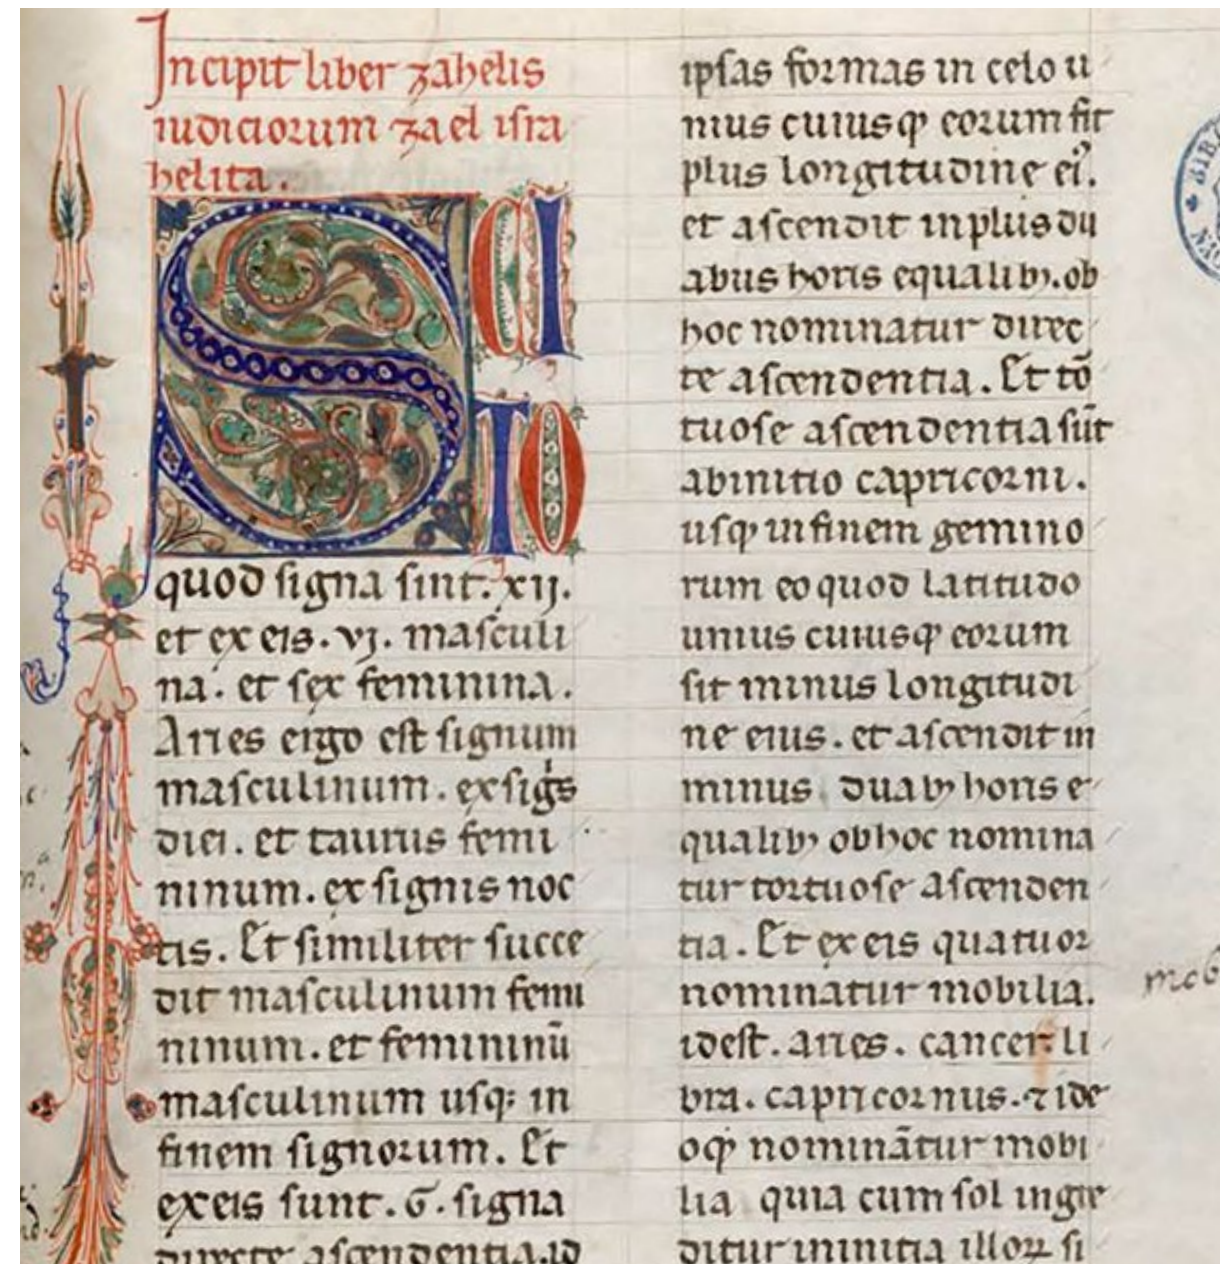 Incipit liber zahelis
iudiciorum zael isra
helita.
SCI
TO
quod signa sint. xij.
et ex eis. vj. masculi
na. et sex feminina.
Aries ergo est signum
masculinum. ex sigs
diei. et taurus femi
ninum. ex signis noc
tis. Et similiter succe
dit masculinum femi
ninum. et femininū
masculinum usq; in
finem signorum. Et
ex eis sunt. 6. signa
directe ascendentia. id
ipsas formas in celo u
nius cuiusq; eorum fit
plus longitudine ei9.
et ascendit in pluis du
abus horis equalib;. ob
hoc nominatur direc
te ascendentia. Et tō
tuose ascendentia sūt
ab initio capricorni.
usq; in finem gemino
rum eo quod latitudo
unius cuiusq; eorum
sit minus longitudi
ne eius. et ascendit in
minus duab; horis e
qualib; ob hoc nomina
tur tortuose ascenden
tia. Et ex eis quatuor
nominatur mobilia.
idest. aries. cancer. li
bra. capricornus. ⁊ ide
oq; nominātur mobi
lia quia cum sol ingre
ditur in initia illoꝝ si
mob